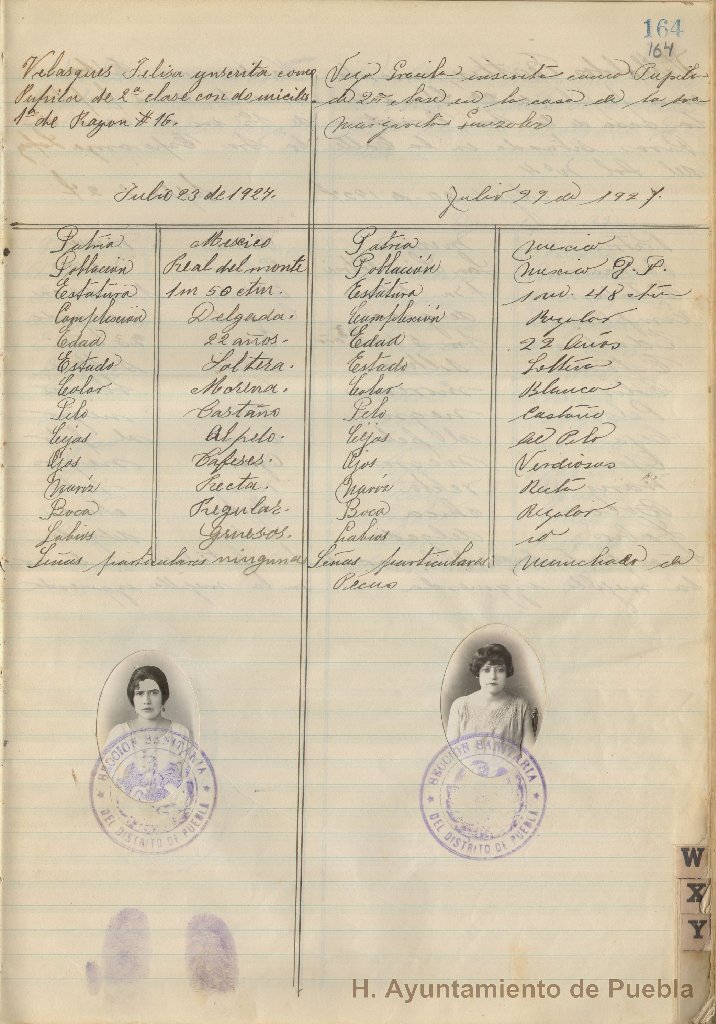 164
164
Velasques Felisa ynscrita como
Pupila de 2ª clase con domicilio
1ª de Rayon # 16.
Julio 23 de 1927.
Patria Mexico
Población Real del monte
Estatura 1m 50 ctm.
Complixión Delgada.
Edad 22 años.
Estado Soltera.
Color Morena.
Pelo Castaño
Cejas Al pelo.
Ojos Cafeses.
Naríz Recta.
Boca Regular.
Labios Gruesos.
Señas particulares ninguna
inscrita como Pupila
de 2ª clase en la casa de la sra
Margarita Gonzalez
Julio 29 de 1927.
Patria Mexico
Población Mexico D. F.
Estatura 1 m. 48 ctm
Complixión Regular
Edad 22 Años
Estado Soltera
Color Blanca
Pelo Castaño
Cejas al Pelo
Ojos Verdiosos
Naríz Recta
Boca Regular
Labios id
Señas particulares: manchada de
Pecas
SECCION SANITARIA
DEL DISTRITO DE PUEBLA
SECCION SANITARIA
DEL DISTRITO DE PUEBLA
W
X
Y
H. Ayuntamiento de Puebla